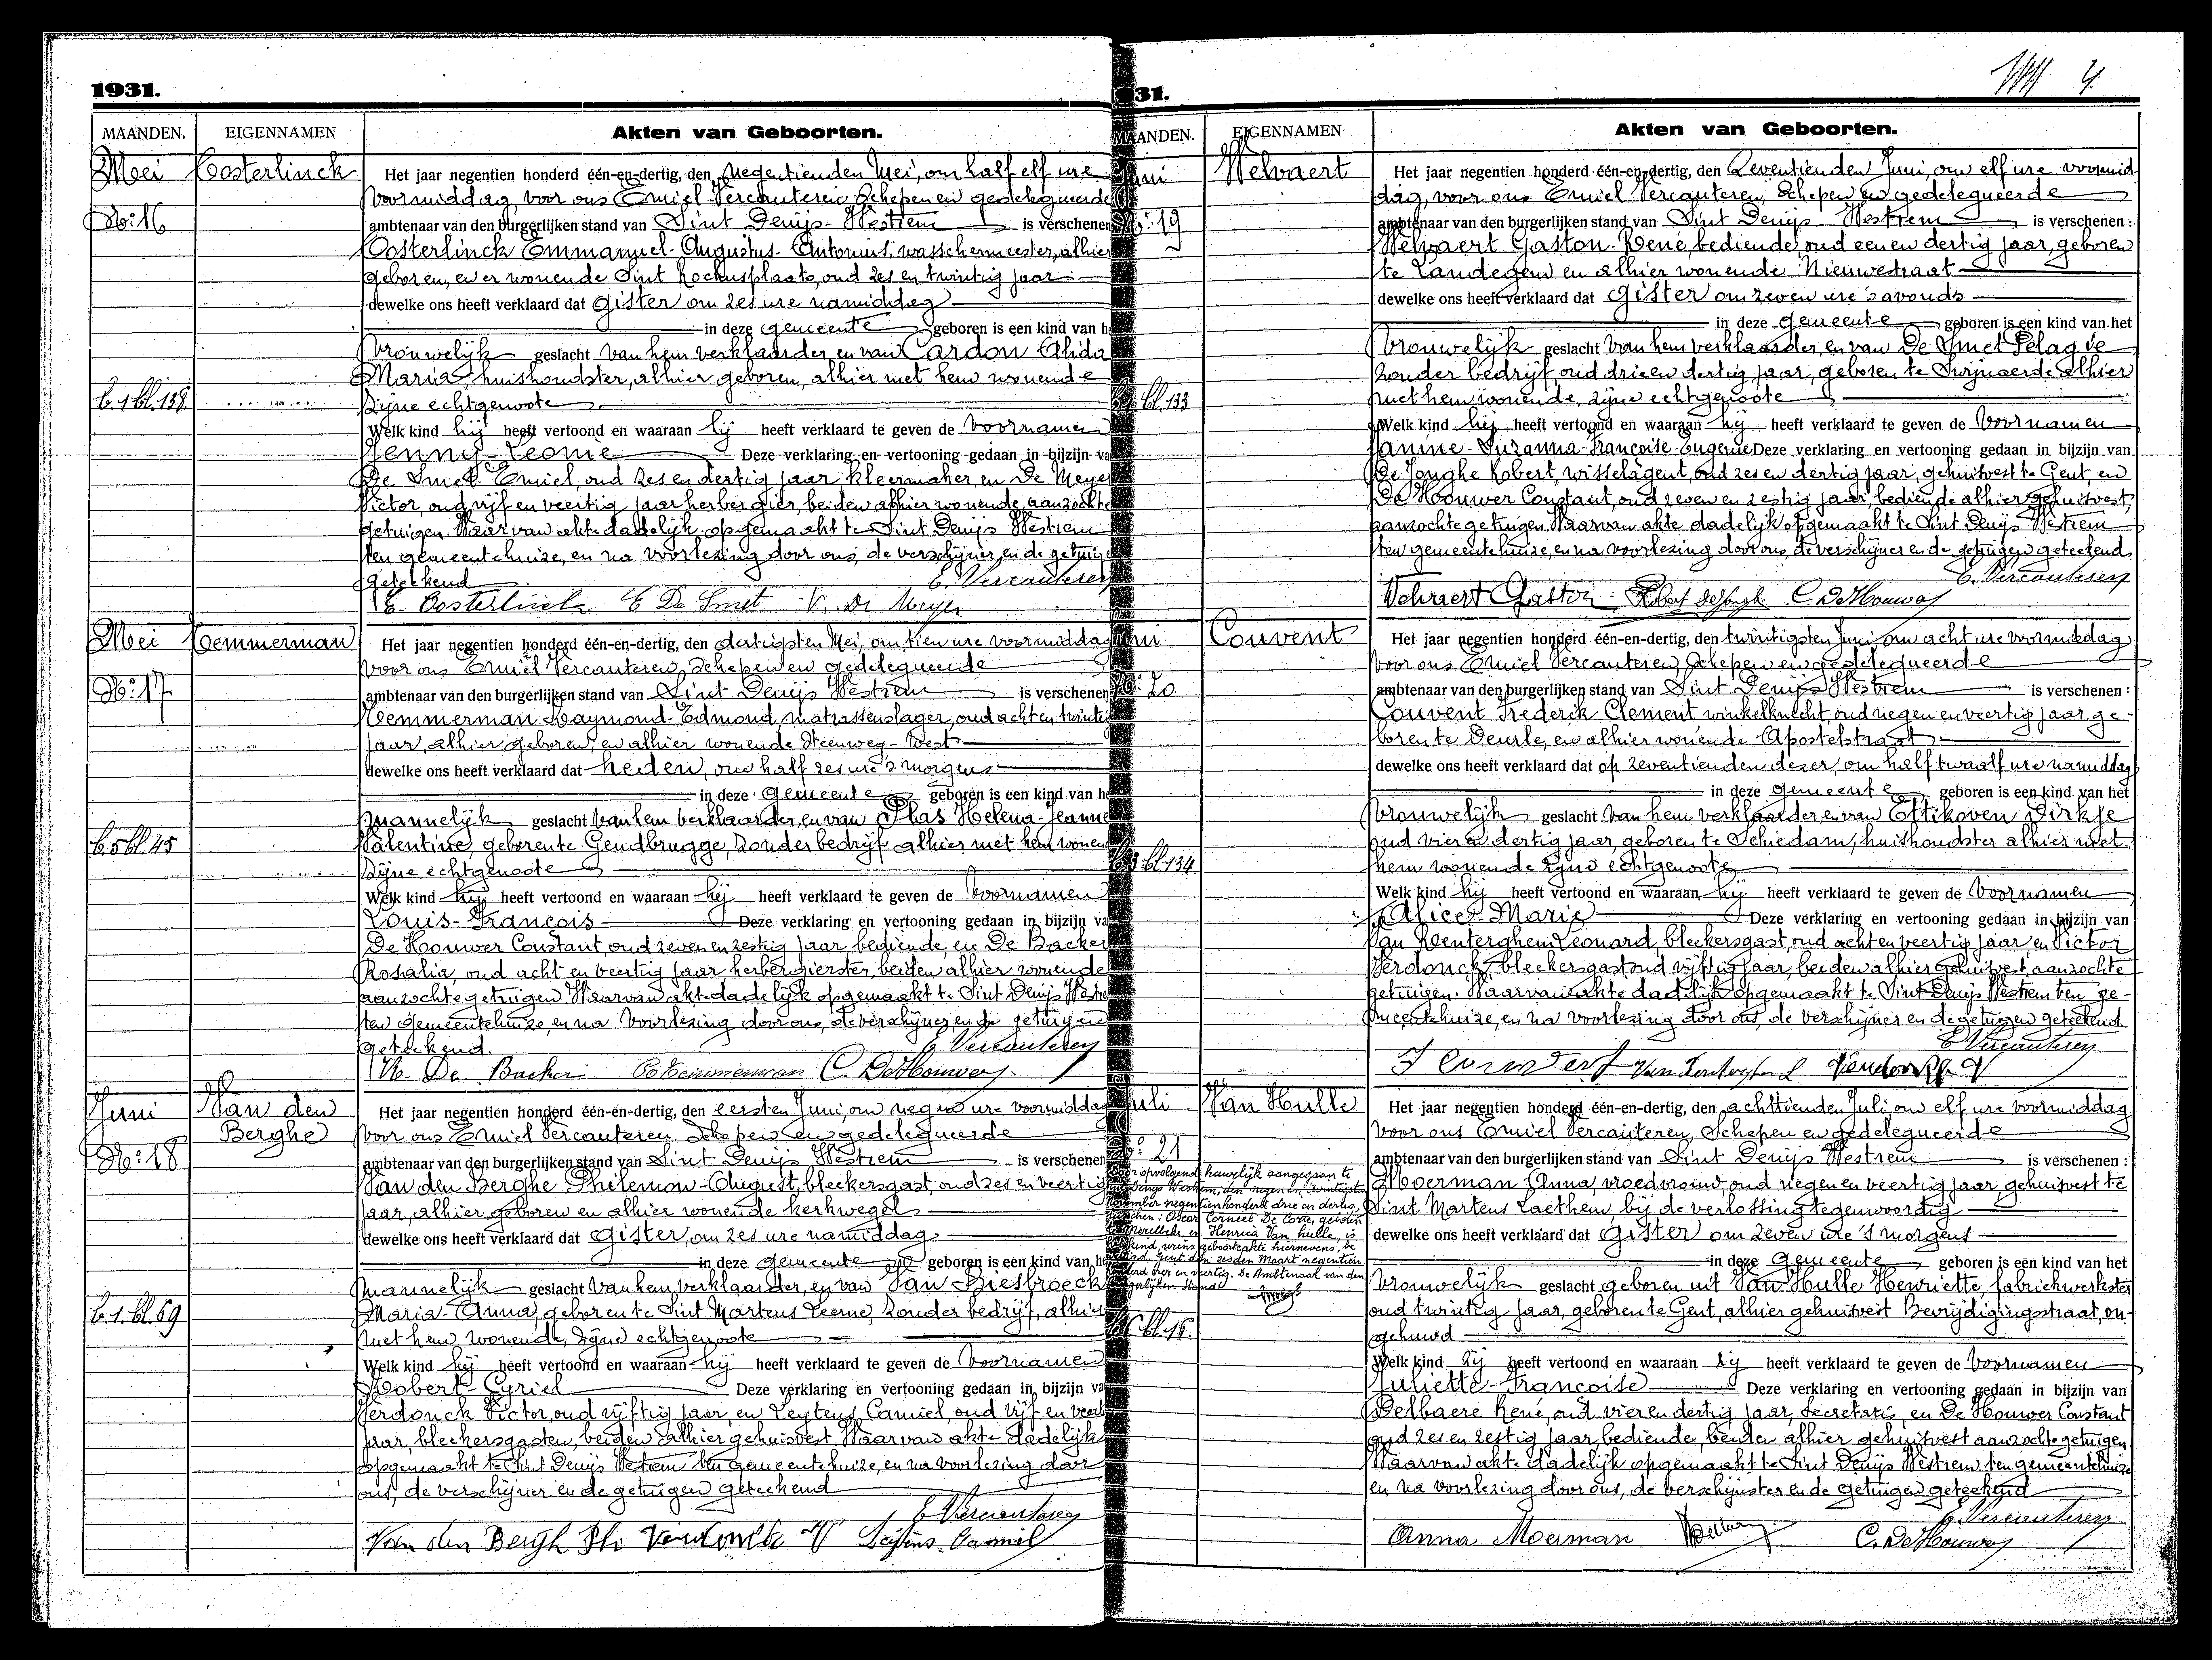 1931.
MAANDEN.
EIGENNAMEN
Akten van Geboorten.
Mei
Oosterlinck
No: 16
b. 1 bl. 138.
Het jaar negentien honderd één-en-dertig, den negentienden Mei, om half elf ure
voormiddag, voor ons Emiel Vercauteren Schepen en gedelegueerde
ambtenaar van den burgerlijken stand van Sint Denijs-Westrem is verschenen
Oosterlinck Emmanuel-Augustus-Antonius, wasschermeester, alhier
geboren, en er wonende Sint Rochusplaats, oud zes en twintig jaar
dewelke ons heeft verklaard dat gister om zes ure namiddag
in deze gemeente geboren is een kind van h
vrouwelijk geslacht van hem verklaarder en van Cardon Alida
Maria, huishoudster, alhier geboren, alhier met hem wonende
zijne echtgenoote
Welk kind hij heeft vertoond en waaraan hij heeft verklaard te geven de voornamen
Jenny-Leonie Deze verklaring en vertooning gedaan in bijzijn va
De Smet Emiel, oud zes en dertig jaar kleermaker, en De Meyer
Victor, oud vijf en veertig jaar herbergier, beiden alhier wonende aanzochte
getuigen. Waarvan akte dadelijk opgemaakt te Sint Denijs Westrem
ten gemeentehuize, en na voorlezing door ons, de verschijner, en de getuige
geteekend
E. Vercauteren
E. Oosterlinck E De Smet V. De Meyer
Mei
Temmerman
No: 17
b. 5 bl. 45
Het jaar negentien honderd één-en-dertig, den dertigsten Mei, om tien ure voormiddag
voor ons Emiel Vercauteren, Schepen en gedelegueerde
ambtenaar van den burgerlijken stand van Sint Denijs Westrem is verschenen
Temmerman Raymond-Edmond, matrassenslager, oud acht en twintig
jaar, alhier geboren, en alhier wonende Steenweg-West
dewelke ons heeft verklaard dat heden, om half zes ure 's morgens
in deze gemeente geboren is een kind van h
mannelijk geslacht van hem verklaarder, en van Plas Helena-Jeanne
Valentine, geboren te Gendbrugge, zonder bedrijf alhier met hem wonen
zijne echtgenoote
Welk kind hij heeft vertoond en waaraan hij heeft verklaard te geven de voornamen
Louis-François Deze verklaring en vertooning gedaan in bijzijn va
De Houwer Constant, oud zeven en zestig jaar bediende, en De Backer
Rosalia, oud acht en veertig jaar herbergierster, beiden alhier wonende
aanzochte getuigen Waarvan akte dadelijk opgemaakt te Sint Denijs Westre
ten gemeentehuize, en na voorlezing door ons, de verschijner en de getuigen
geteekend.
E Vercauteren
De Backer Temmerman C. DeHouwer
Juni
Van den
Berghe
No: 18
b. 1. bl. 69
Het jaar negentien honderd één-en-dertig, den eersten Juni, om negen ure voormiddag
voor ons Emiel Vercauteren Schepen en gedelegueerde
ambtenaar van den burgerlijken stand van Sint Denijs Westrem is verschenen
Van den Berghe Philemon-August, bleekersgast, oud zes en veertig
jaar, alhier geboren en alhier wonende kerkwegel
dewelke ons heeft verklaard dat gister, om zes ure namiddag
in deze gemeente geboren is een kind van he
mannelijk geslacht van hem verklaarder, en van Van Biesbroeck
Maria-Anna, geboren te Sint Martens Leerne, zonder bedrijf, alhier
met hem wonende, zijne echtgenoote
Welk kind hij heeft vertoond en waaraan hij heeft verklaard te geven de voornamen
Robert-Cyriel Deze verklaring en vertooning gedaan in bijzijn va
Verdonck Victor, oud vijftig jaar, en Leytens Camiel, oud vijf en veert
jaar, bleekersgasten, beiden alhier gehuisvest. Waarvan akte dadelijk
opgemaakt te Sint Denijs Westrem ten gemeentehuize, en na voorlezing door
ons, de verschijner en de getuigen geteekend
E Vercauteren
Van den Bergh Phi Verdonck V Leytens Camiel
31.
4.
MAANDEN.
EIGENNAMEN
Akten van Geboorten.
Juni
Welvaert
No: 19
bl. 133
Het jaar negentien honderd één-en-dertig, den zeventienden Juni, om elf ure voormid-
dag, voor ons Emiel Vercauteren, Schepen en gedelegueerde
ambtenaar van den burgerlijken stand van Sint Denijs Westrem is verschenen:
Welvaert Gaston-René, bediende, oud een en dertig jaar, geboren
te Landegem en alhier wonende Nieuwstraat
dewelke ons heeft verklaard dat gister om zeven ure 's avonds
in deze gemeente geboren is een kind van het
vrouwelijk geslacht van hem verklaarder, en van De Smet Pelagie
zonder bedrijf oud drie en dertig jaar, geboren te alhier
met hem wonende, zijne echtgenoote
Welk kind hij heeft vertoond en waaraan hij heeft verklaard te geven de voornamen
Janine-Suzanna-Françoise-Eugenie Deze verklaring en vertooning gedaan in bijzijn van
De Jonghe Robert, wisselagent, oud zes en dertig jaar, gehuisvest te Gent, en
De Houwer Constant, oud zeven en zestig jaar, bediende alhier gehuisvest,
aanzochte getuigen Waarvan akte dadelijk opgemaakt te Sint Denijs Westrem
ten gemeentehuize, en na voorlezing door ons, de verschijner en de getuigen geteekend.
E. Vercauteren
Welvaert Gaston. Robert DeJonghe C. DeHouwer
Juni
Couvent
No: 20
b. 3 bl. 134
Het jaar negentien honderd één-en-dertig, den twintigsten Juni, om acht ure voormiddag
voor ons Emiel Vercauteren, Schepen en gedelegueerde
ambtenaar van den burgerlijken stand van Sint Denijs Westrem is verschenen:
Couvent Frederik Clement winkelknecht, oud negen en veertig jaar, ge-
boren te Deurle, en alhier wonende Apostelstraat
dewelke ons heeft verklaard dat op zeventienden dezer, om half twaalf ure namiddag
in deze gemeente geboren is een kind van het
vrouwelijk geslacht van hem verklaarder en van Ettikoven Dirkje
oud vier en dertig jaar, geboren te Schiedam, huishoudster alhier met
hem wonende zijne echtgenoote
Welk kind hij heeft vertoond en waaraan hij heeft verklaard te geven de voornamen
Alice-Marie Deze verklaring en vertooning gedaan in bijzijn van
Van Renterghem Leonard, bleekersgast, oud acht en veertig jaar en Victor
Verdonck, bleekersgast oud vijftig jaar, beiden alhier gehuisvest, aanzochte
getuigen. Waarvan akte dadelijk opgemaakt te Sint Denijs Westrem ten ge-
meentehuize, en na voorlezing door ons, de verschijner en de getuigen geteekend
E Vercauteren
Juli
Van Hulle
No: 21
Door opvolgend huwelijk aangegaan te
Sint Denijs Westrem, den negen en twintigsten
November negentienhonderd drie en dertig,
tusschen: Oscar Corneel De Corte, geboren
te Merelbeke, en Henrica Van hulle, is
het kind, wiens geboorteakte hiernevens, be
Gent den zesden Maart negentien
honderd vier en veertig. De Ambtenaar van den
Burgerlijken Stand
bl. 16.
Het jaar negentien honderd één-en-dertig, den achttienden Juli, om elf ure voormiddag
voor ons Emiel Vercauteren, Schepen en gedelegueerde
ambtenaar van den burgerlijken stand van Sint Denijs Westrem is verschenen:
Moerman Anna, vroedvrouw, oud negen en veertig jaar, gehuisvest te
Sint Martens Laethem, bij de verlossing tegenwoordig
dewelke ons heeft verklaard dat gister om zeven ure 's morgens
in deze gemeente geboren is een kind van het
vrouwelijk geslacht geboren uit Van Hulle Henriette, fabriekwerkster
oud twintig jaar, geboren te Gent, alhier gehuisvest Bevrijdigingstraat, on-
gehuwd
Welk kind zij heeft vertoond en waaraan zij heeft verklaard te geven de voornamen
Juliette-Françoise Deze verklaring en vertooning gedaan in bijzijn van
Delbaere René, oud vier en dertig jaar, Secretaris, en De Houwer Constant
oud zes en zestig jaar, bediende, beiden alhier gehuisvest aanzochte getuigen
Waarvan akte dadelijk opgemaakt te Sint Denijs Westrem ten gemeentehuize
en na voorlezing door ons, de verschijnster en de getuigen geteekend
E. Vercauteren
Anna Moerman C. DeHouwer